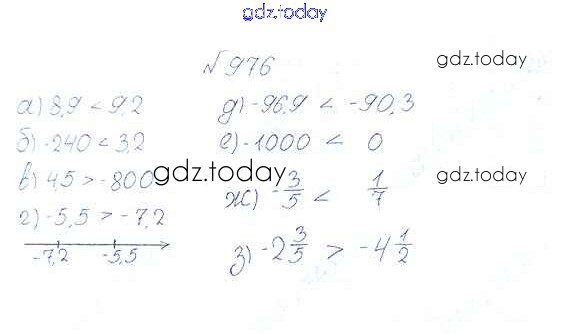 gdz.today
№ 976
gdz.today
а) 8,9 < 9,2
б) -240 < 3,2
в) 45 > -800
г) -5,5 > -7,2
-7,2 -5,5
gdz.today
д) -96,9 < -90,3
е) -1000 < 0
ж) -3/5 < 1/7
gdz.today
з) -2 3/5 > -4 1/2